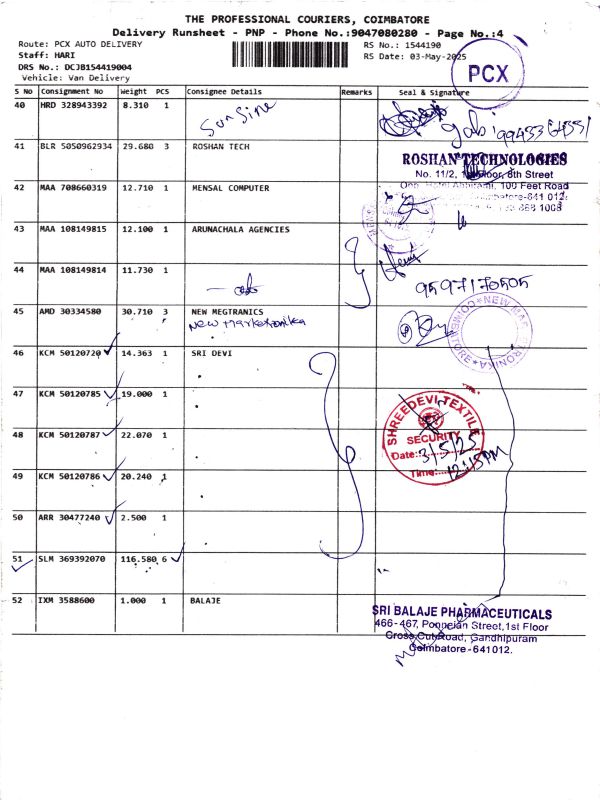 THE PROFESSIONAL COURIERS, COIMBATORE
Delivery Runsheet - PNP - Phone No.:9047080280 - Page No.:4
Route: PCX AUTO DELIVERY
RS No.: 1544190
Staff: HARI
RS Date: 03-May-2025
DRS No.: DCJB154419004
Vehicle: Van Delivery
PCX
S No Consignment No Weight PCS Consignee Details Remarks Seal & Signature
40 HRD 328943392 8.310 1
Sunsine
41 BLR 5050962934 29.680 3 ROSHAN TECH
ROSHAN TECHNOLOGIES
No. 11/2, 1st Floor, 8th Street
100 Feet Road
42 MAA 708660319 12.710 1 MENSAL COMPUTER
43 MAA 108149815 12.100 1 ARUNACHALA AGENCIES
44 MAA 108149814 11.730 1
9597170505
45 AMD 30334580 30.710 3 NEW MEGTRONICS
New Marketronika
46 KCM 50120720 14.363 1 SRI DEVI
47 KCM 50120785 19.000 1
SHREEDEVI TEXTILE
SECURITY
Date: 3/5/25
Time: 12:15PM
48 KCM 50120787 22.070 1
49 KCM 50120786 20.240 1
50 ARR 30477240 2.500 1
51 SLM 369392070 116.580 6
52 IXM 3588600 1.000 1 BALAJE
SRI BALAJE PHARMACEUTICALS
466-467, Ponneian Street, 1st Floor
Cross Cut Road, Gandhipuram
Coimbatore-641012.